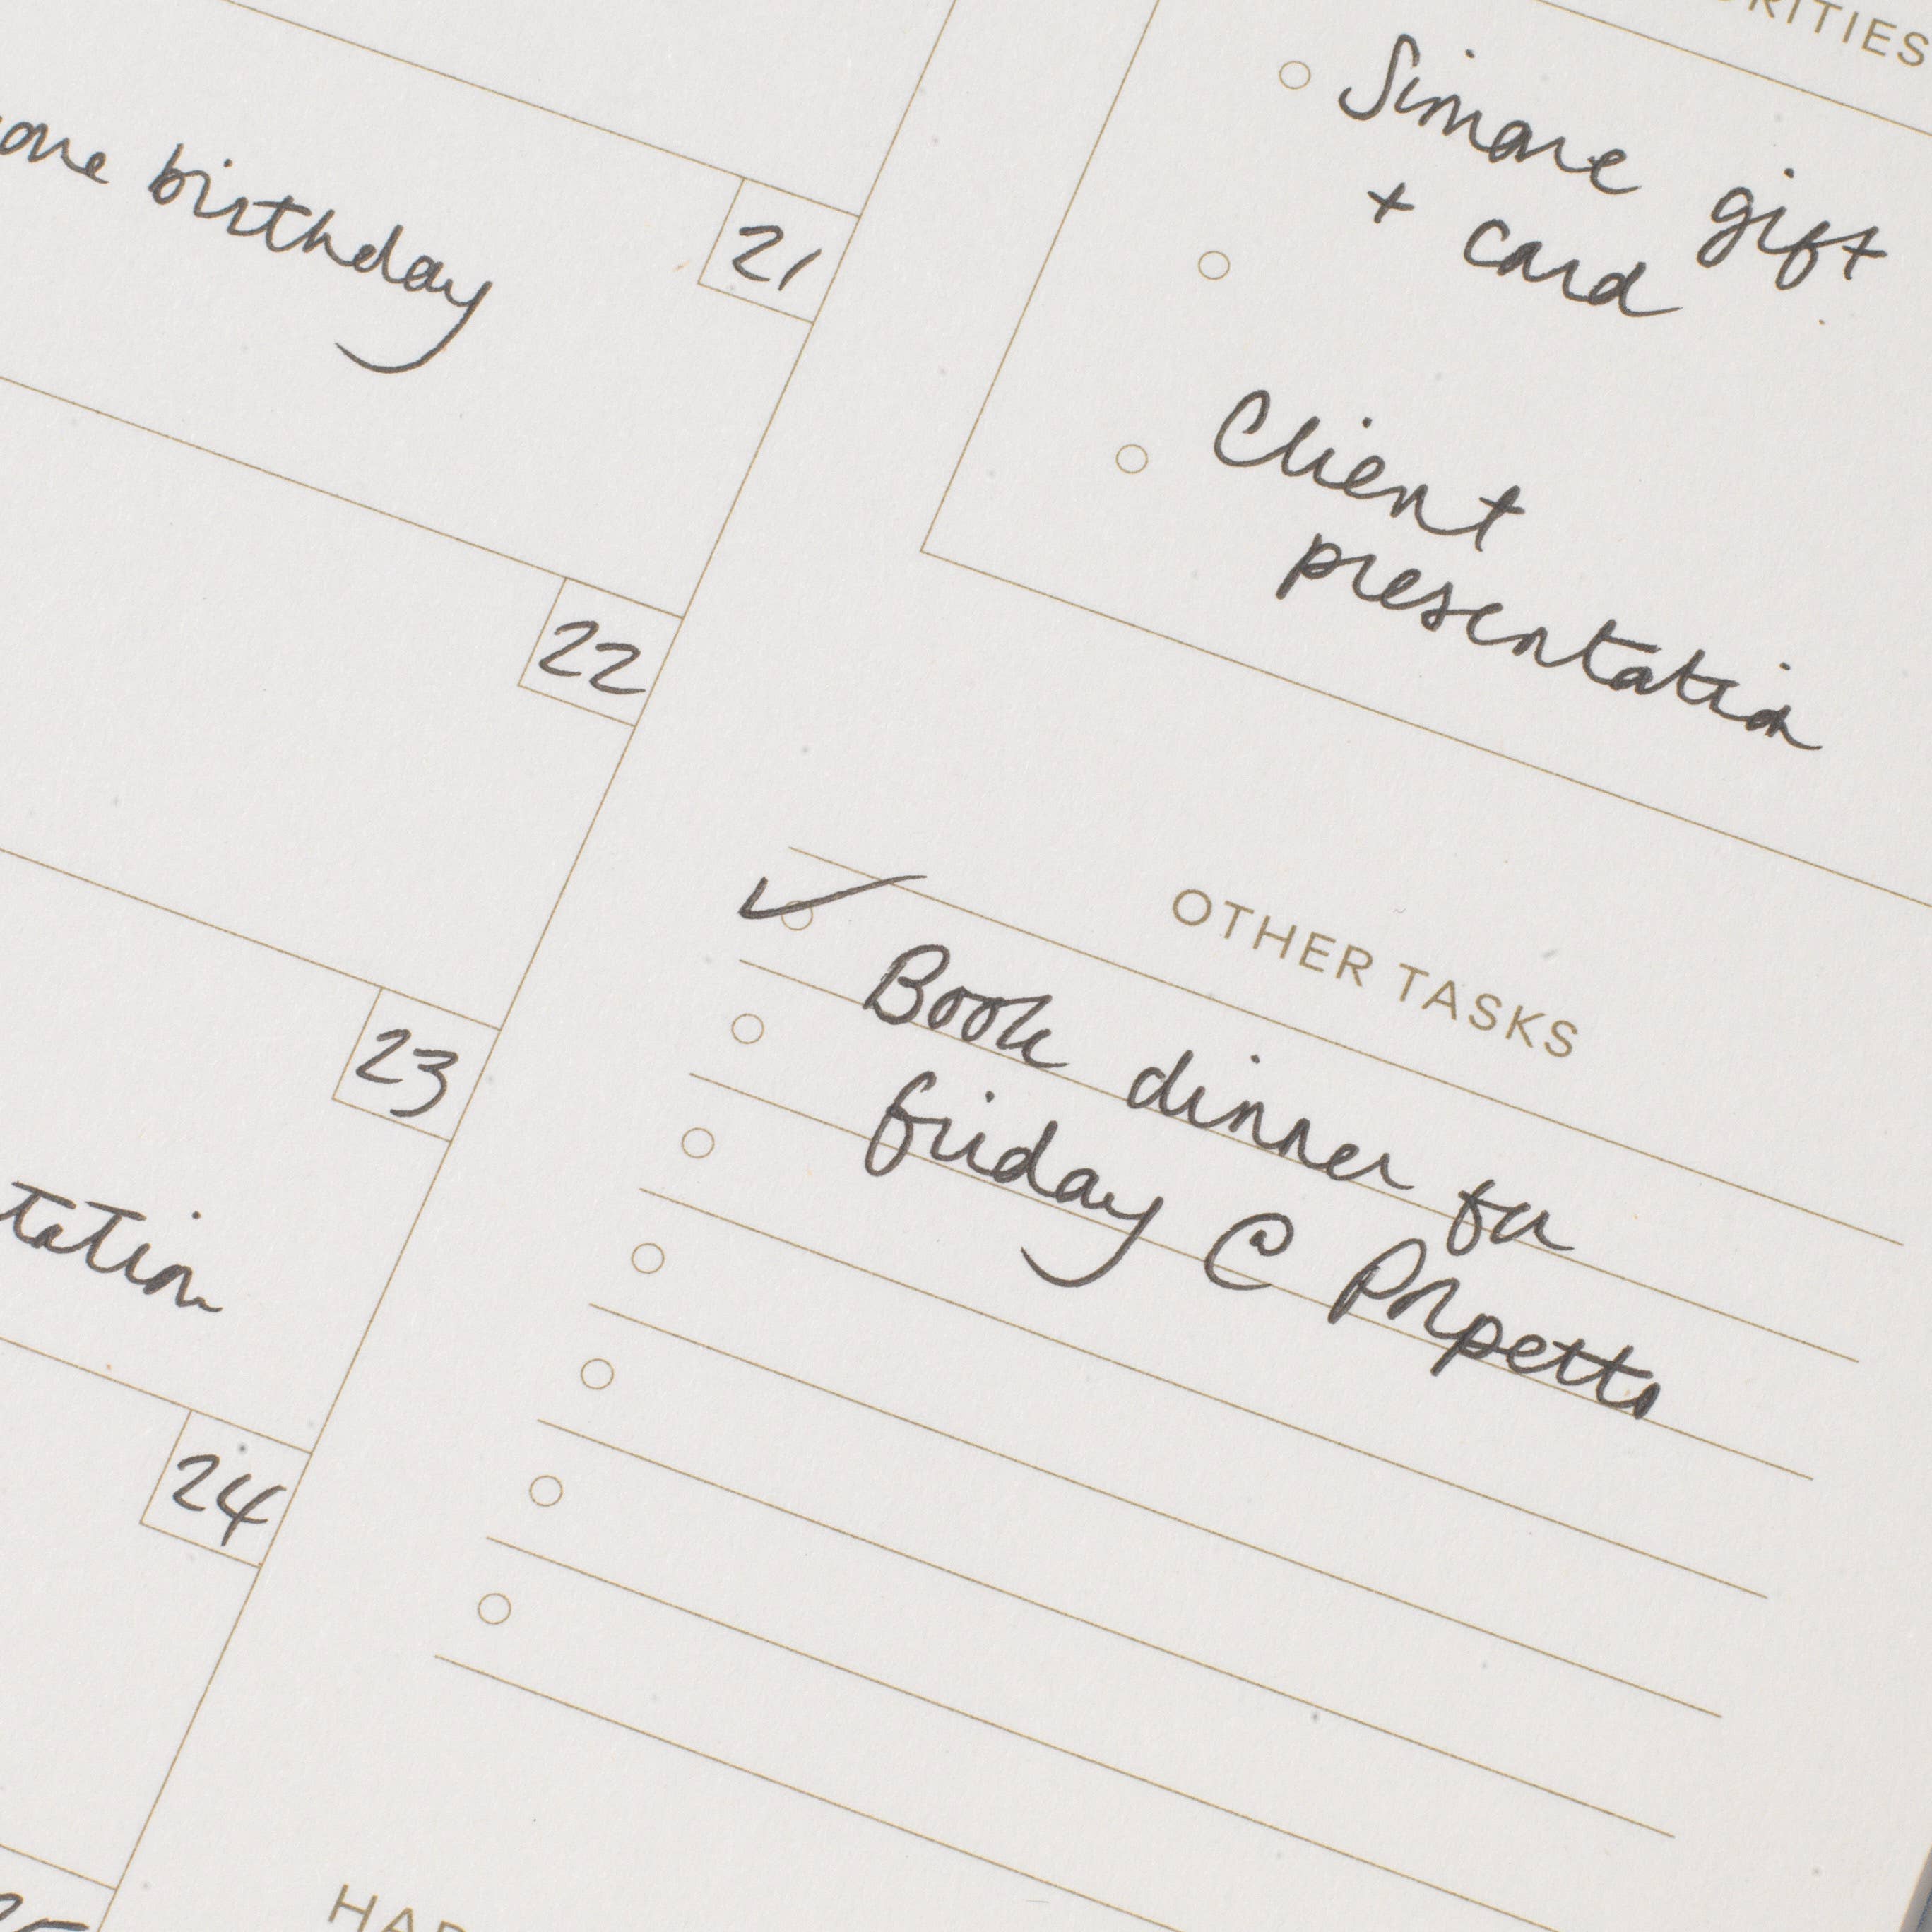 one birthday
21
22
23
tation
24
25
RITIES
Simone gift
+ card
Client
presentation
OTHER TASKS
✓ Book dinner for
friday @
HAB